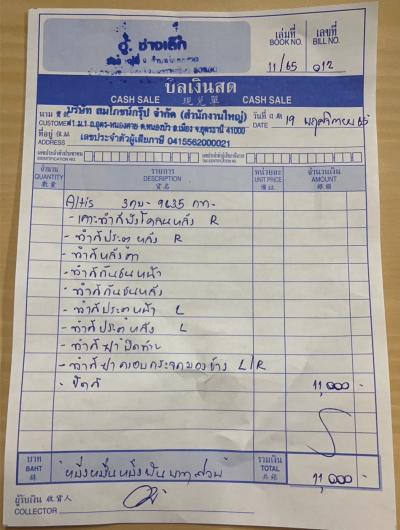 อู่ ช่างเล็ก
เล่มที่ เลขที่
BOOK NO. BILL NO.
11/65 012
บิลเงินสด
CASH SALE 現兌單 CASH SALE
นาม บริษัท สมโภชน์กรุ๊ป จำกัด (สำนักงานใหญ่) วันที่
CUSTOMER ถ.อุดร-หนองคาย ต.หมากแข้ง อ.เมือง จ.อุดรธานี 41000 DATE 19 พฤศจิกายน 65
ที่อยู่ เลขประจำตัวผู้เสียภาษี 0415562000021
ADDRESS
เลขประจำตัวประชาชน เลขประจำตัวผู้เสียภาษีอากร
IDENTIFICATION NO.
จำนวน รายการ หน่วยละ จำนวนเงิน
QUANTITY DESCRIPTION UNIT PRICE AMOUNT
數量 貨名 價以 銀碼
Altis 3กบ- 9635 กท-
- เคาะทำสีบังโคลนหลัง R
- ทำสีประตูหลัง R
- ทำสีหลังคา
- ทำสีกันชนหน้า
- ทำสีกันชนหลัง
- ทำสีประตูหน้า L
- ทำสีประตูหลัง L
- ทำสีฝาปิดท้าย
- ทำสีฝาครอบกระจกมองข้าง L/R
- ขัดสี 11,000 -
บาท รวมเงิน
BAHT หนึ่งหมื่นหนึ่งพันบาทถ้วน TOTAL 11,000 -
銖 共銀
ผู้รับเงิน 收貨人
COLLECTOR